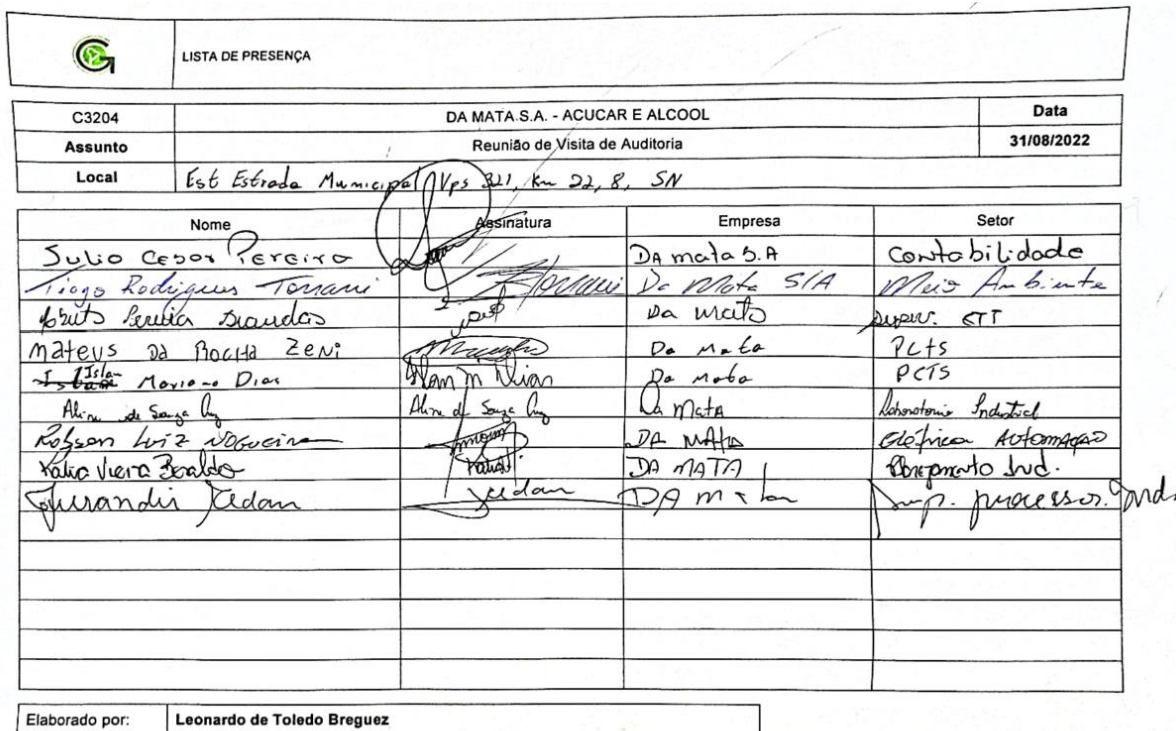 LISTA DE PRESENÇA
C3204 DA MATA S.A. - ACUCAR E ALCOOL Data
Assunto Reunião de Visita de Auditoria 31/08/2022
Local Est Estrada Municipal Vps 321, Km 22,8, SN
Nome Assinatura Empresa Setor
Julio Cesar Pereira DA mata S.A Contabilidade
Tiago Rodrigues Torrani Da Mata S/A Meio Ambiente
Pereira Da mata superv. CTT
mateus Da Rocha Zeni Da Mata PCTS
Mariano Dias Da Mata PCTS
Aline de Souza Aline de Souza Da Mata Laboratorio Industrial
Robson Luiz Nogueira DA MATA Elétrica Automação
Katia Vieira Beraldo DA MATA Ind.
Jurandir DA mata processos
Elaborado por: Leonardo de Toledo Breguez